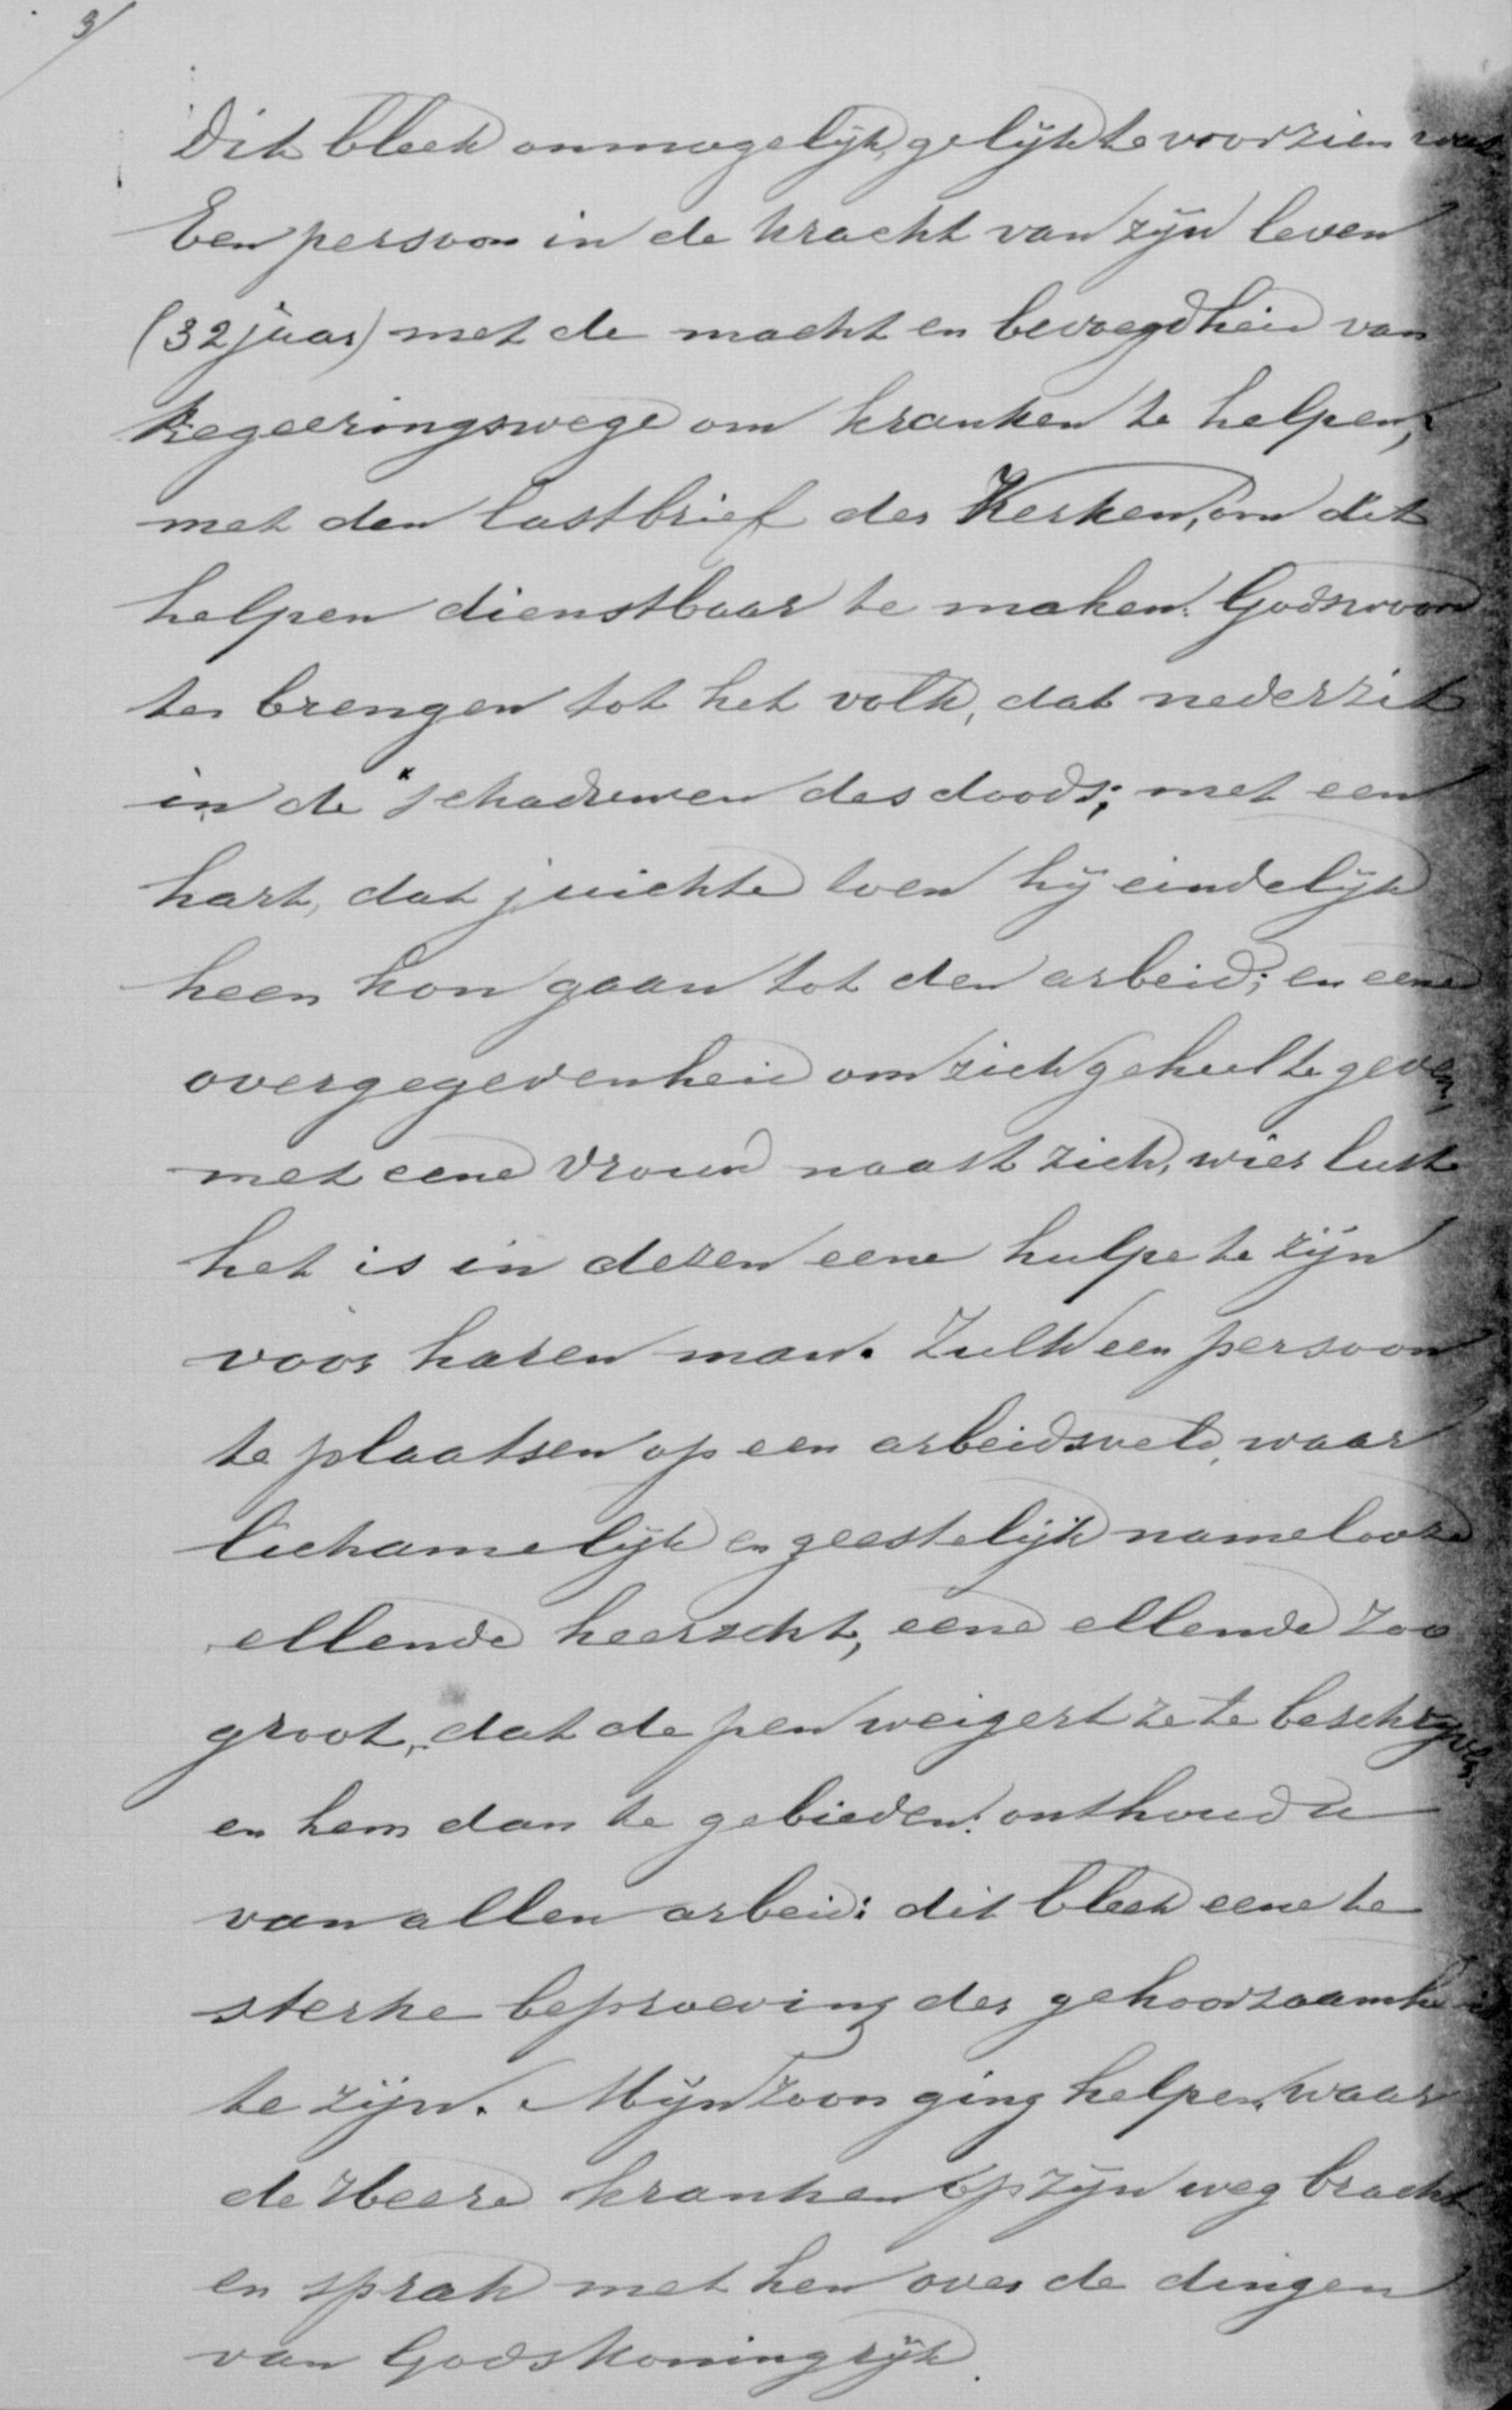 3/
Dit bleek onmogelijk, gelijk te voorzien was.
Een persoon in de kracht van zijn leven
(32 jaar) met de macht en bevoegdheid van
Regeeringswege om kranken te helpen,
met den lastbrief der Kerken, om dit
helpen dienstbaar te maken: Godswoord
te brengen tot het volk, dat nederzit
in de schaduwen des doods; met een
hart, dat juichte toen hij eindelijk
heen kon gaan tot den arbeid; en eene
overgegevenheid om zich geheel te geven,
met eene vrouw naast zich, wier lust
het is in dezen eene hulpe te zijn
voor haren man. Zulk een persoon
te plaatsen op een arbeidsveld, waar
lichamelijk en geestelijk namelooze
ellende heerscht, eene ellende zoo
groot, dat de pen weigert ze te beschrijven,
en hem dan te gebieden: onthoud u
van allen arbeid: dit bleek eene te
sterke beproeving der gehoorzaamheid
te zijn. Mijn zoon ging helpen, waar
de Heere kranken op zijn weg bracht
en sprak met hen over de dingen
van Gods Koningrijk.